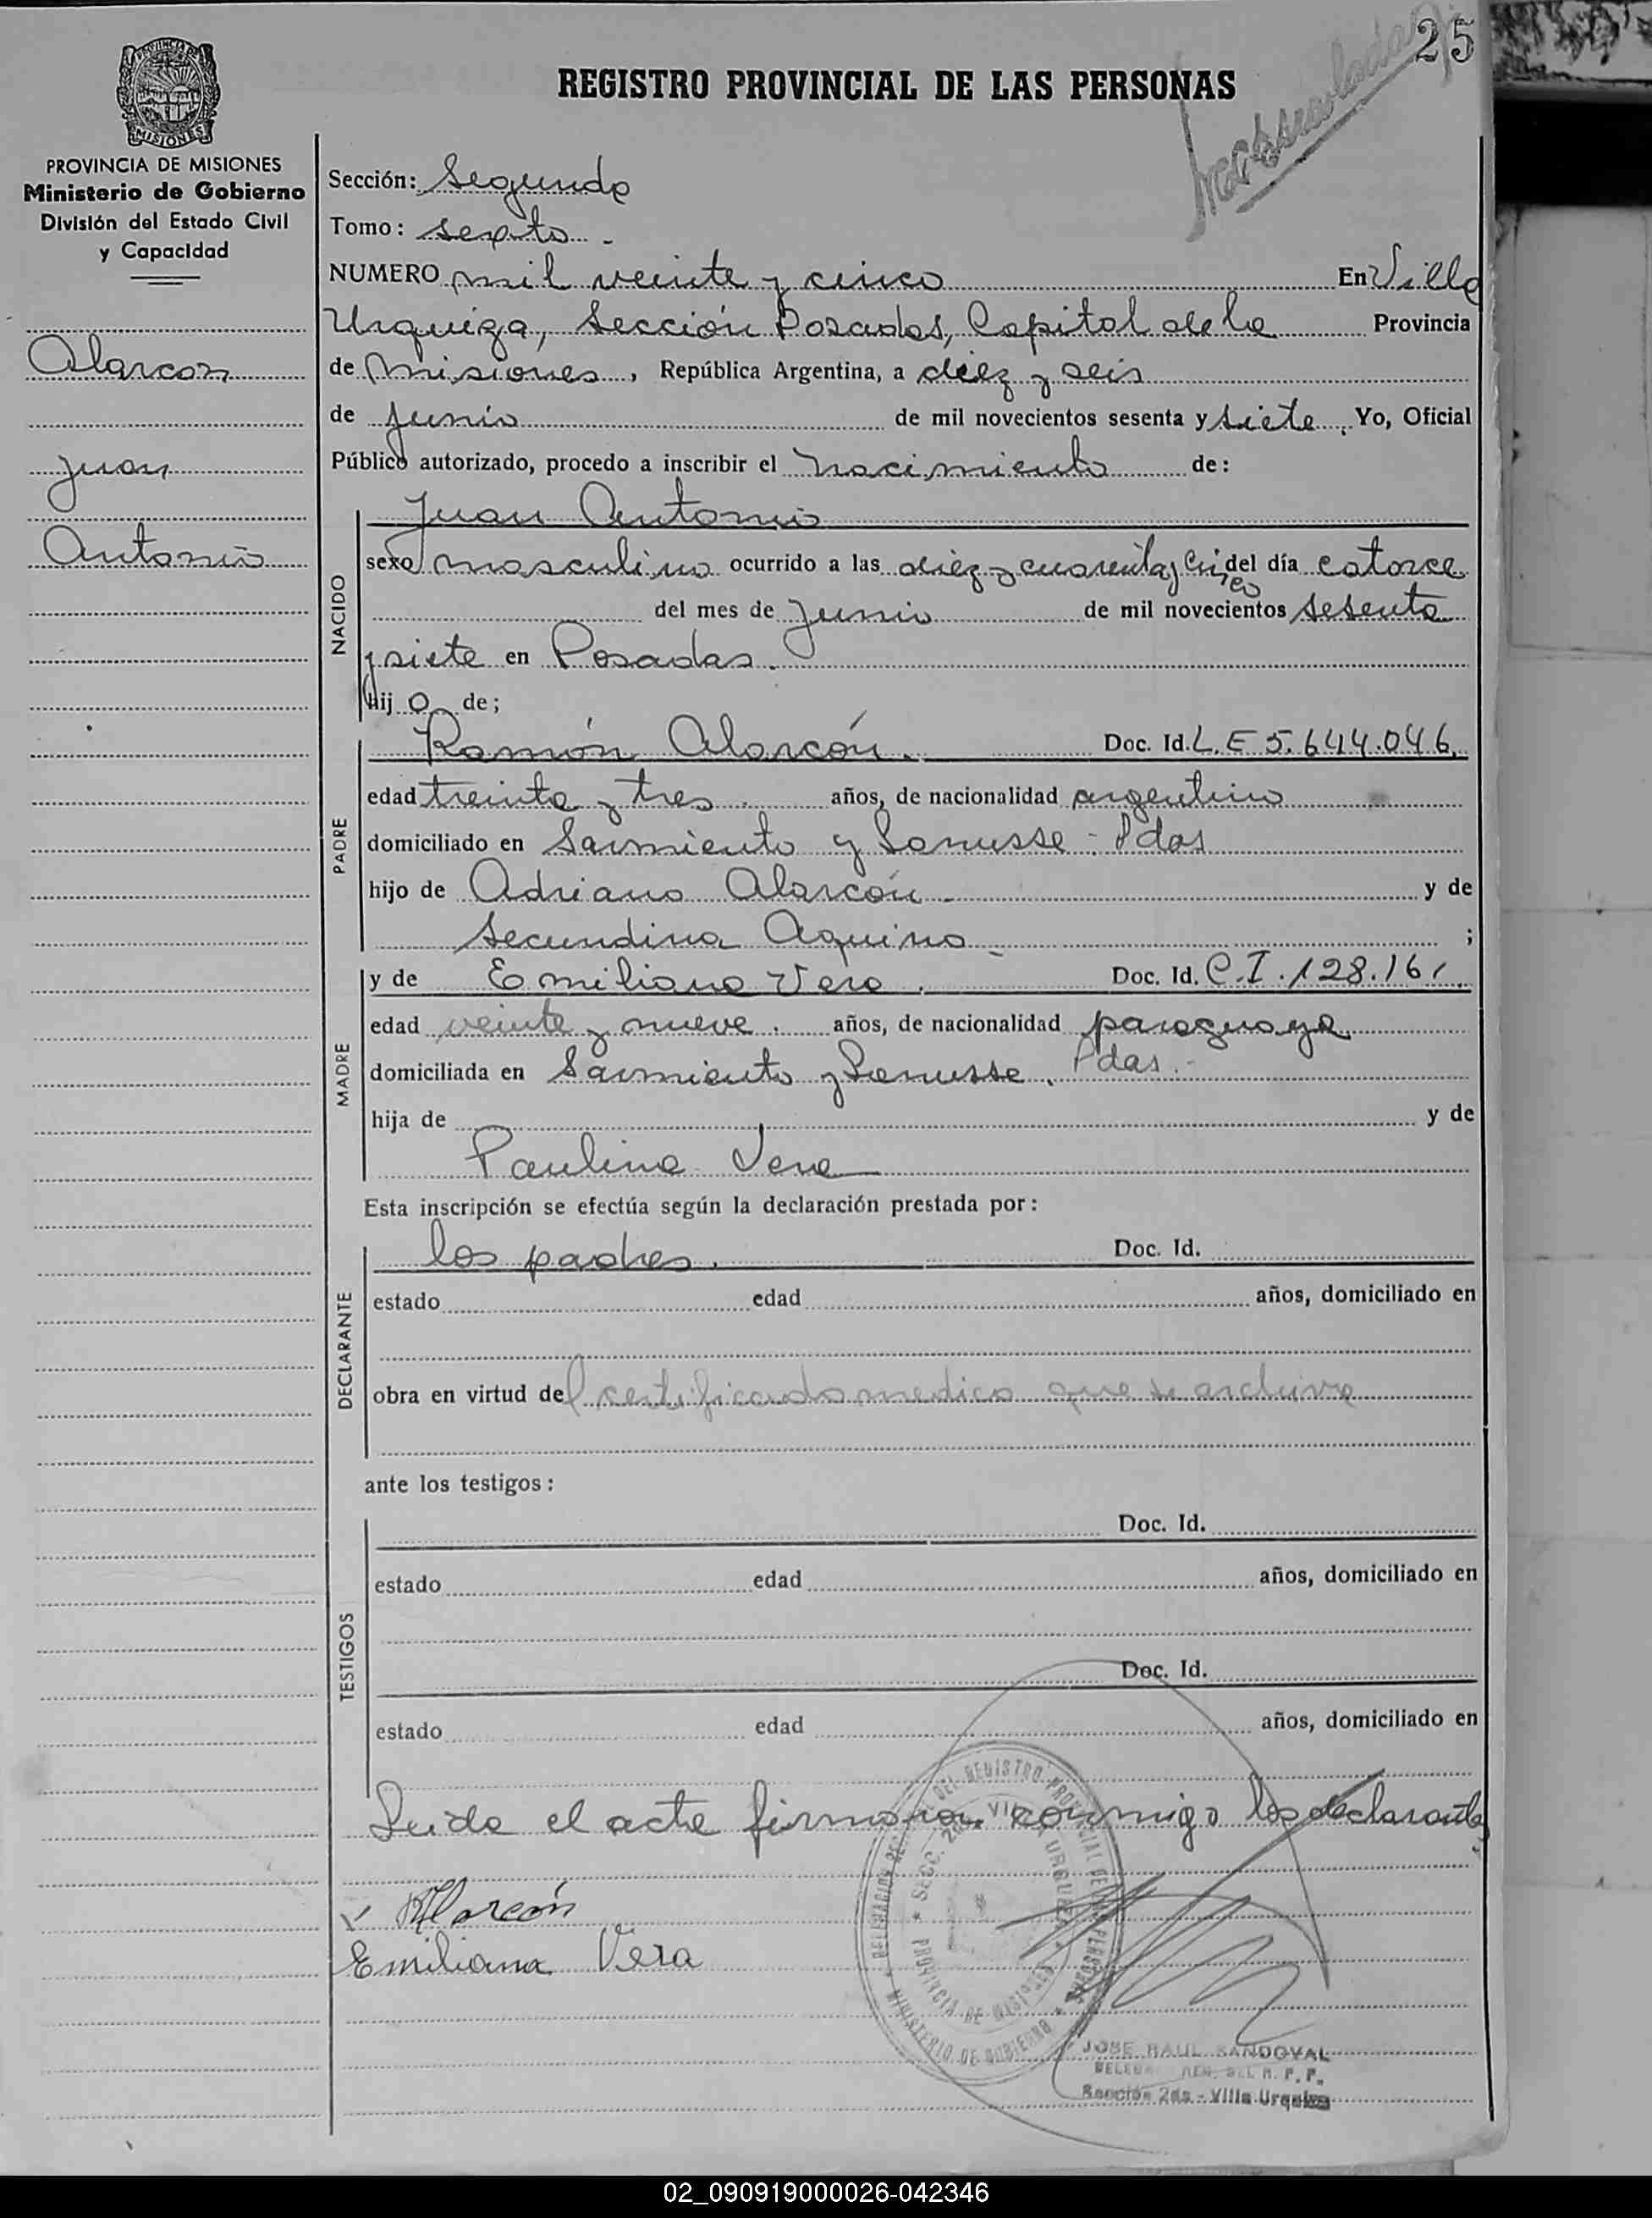 25
REGISTRO PROVINCIAL DE LAS PERSONAS
PROVINCIA DE MISIONES
Ministerio de Gobierno
División del Estado Civil
y Capacidad
Alarcon
Juan
Antonio
Sección: Segunda
Tomo: sexto.-
NUMERO mil veinte y cinco En Villa
Urquiza, Sección Posadas, Capital de la Provincia
de Misiones, República Argentina, a diez y seis
de junio de mil novecientos sesenta y siete, Yo, Oficial
Público autorizado, procedo a inscribir el nacimiento de:
NACIDO
Juan Antonio
sexo masculino ocurrido a las diez y cuarenta y cinco del día catorce
del mes de Junio de mil novecientos sesenta
y siete en Posadas.
hijo de;
PADRE
Ramón Alarcón. Doc. Id. L.E 5.644.046.
edad treinta y tres. años, de nacionalidad argentino
domiciliado en Sarmiento y Lanusse - Pdas
hijo de Adriano Alarcón - y de
Secundina Aquino - ;
MADRE
y de Emiliana Vera. Doc. Id. C.I. 128.161.
edad veinte y nueve. años, de nacionalidad paraguaya
domiciliada en Sarmiento y Lanusse. Pdas.-
hija de y de
Paulina Vera
Esta inscripción se efectúa según la declaración prestada por:
DECLARANTE
los padres. Doc. Id.
estado edad años, domiciliado en
obra en virtud del certificado medico que se archiva
ante los testigos:
TESTIGOS
Doc. Id.
estado edad años, domiciliado en
Doc. Id.
estado edad años, domiciliado en
Leida el acta firman conmigo los declarantes
RAlarcón
Emiliana Vera
JOSE RAUL SANDOVAL
DEL R. P. P.
Sección 2da - Villa Urquiza
02_090919000026-042346